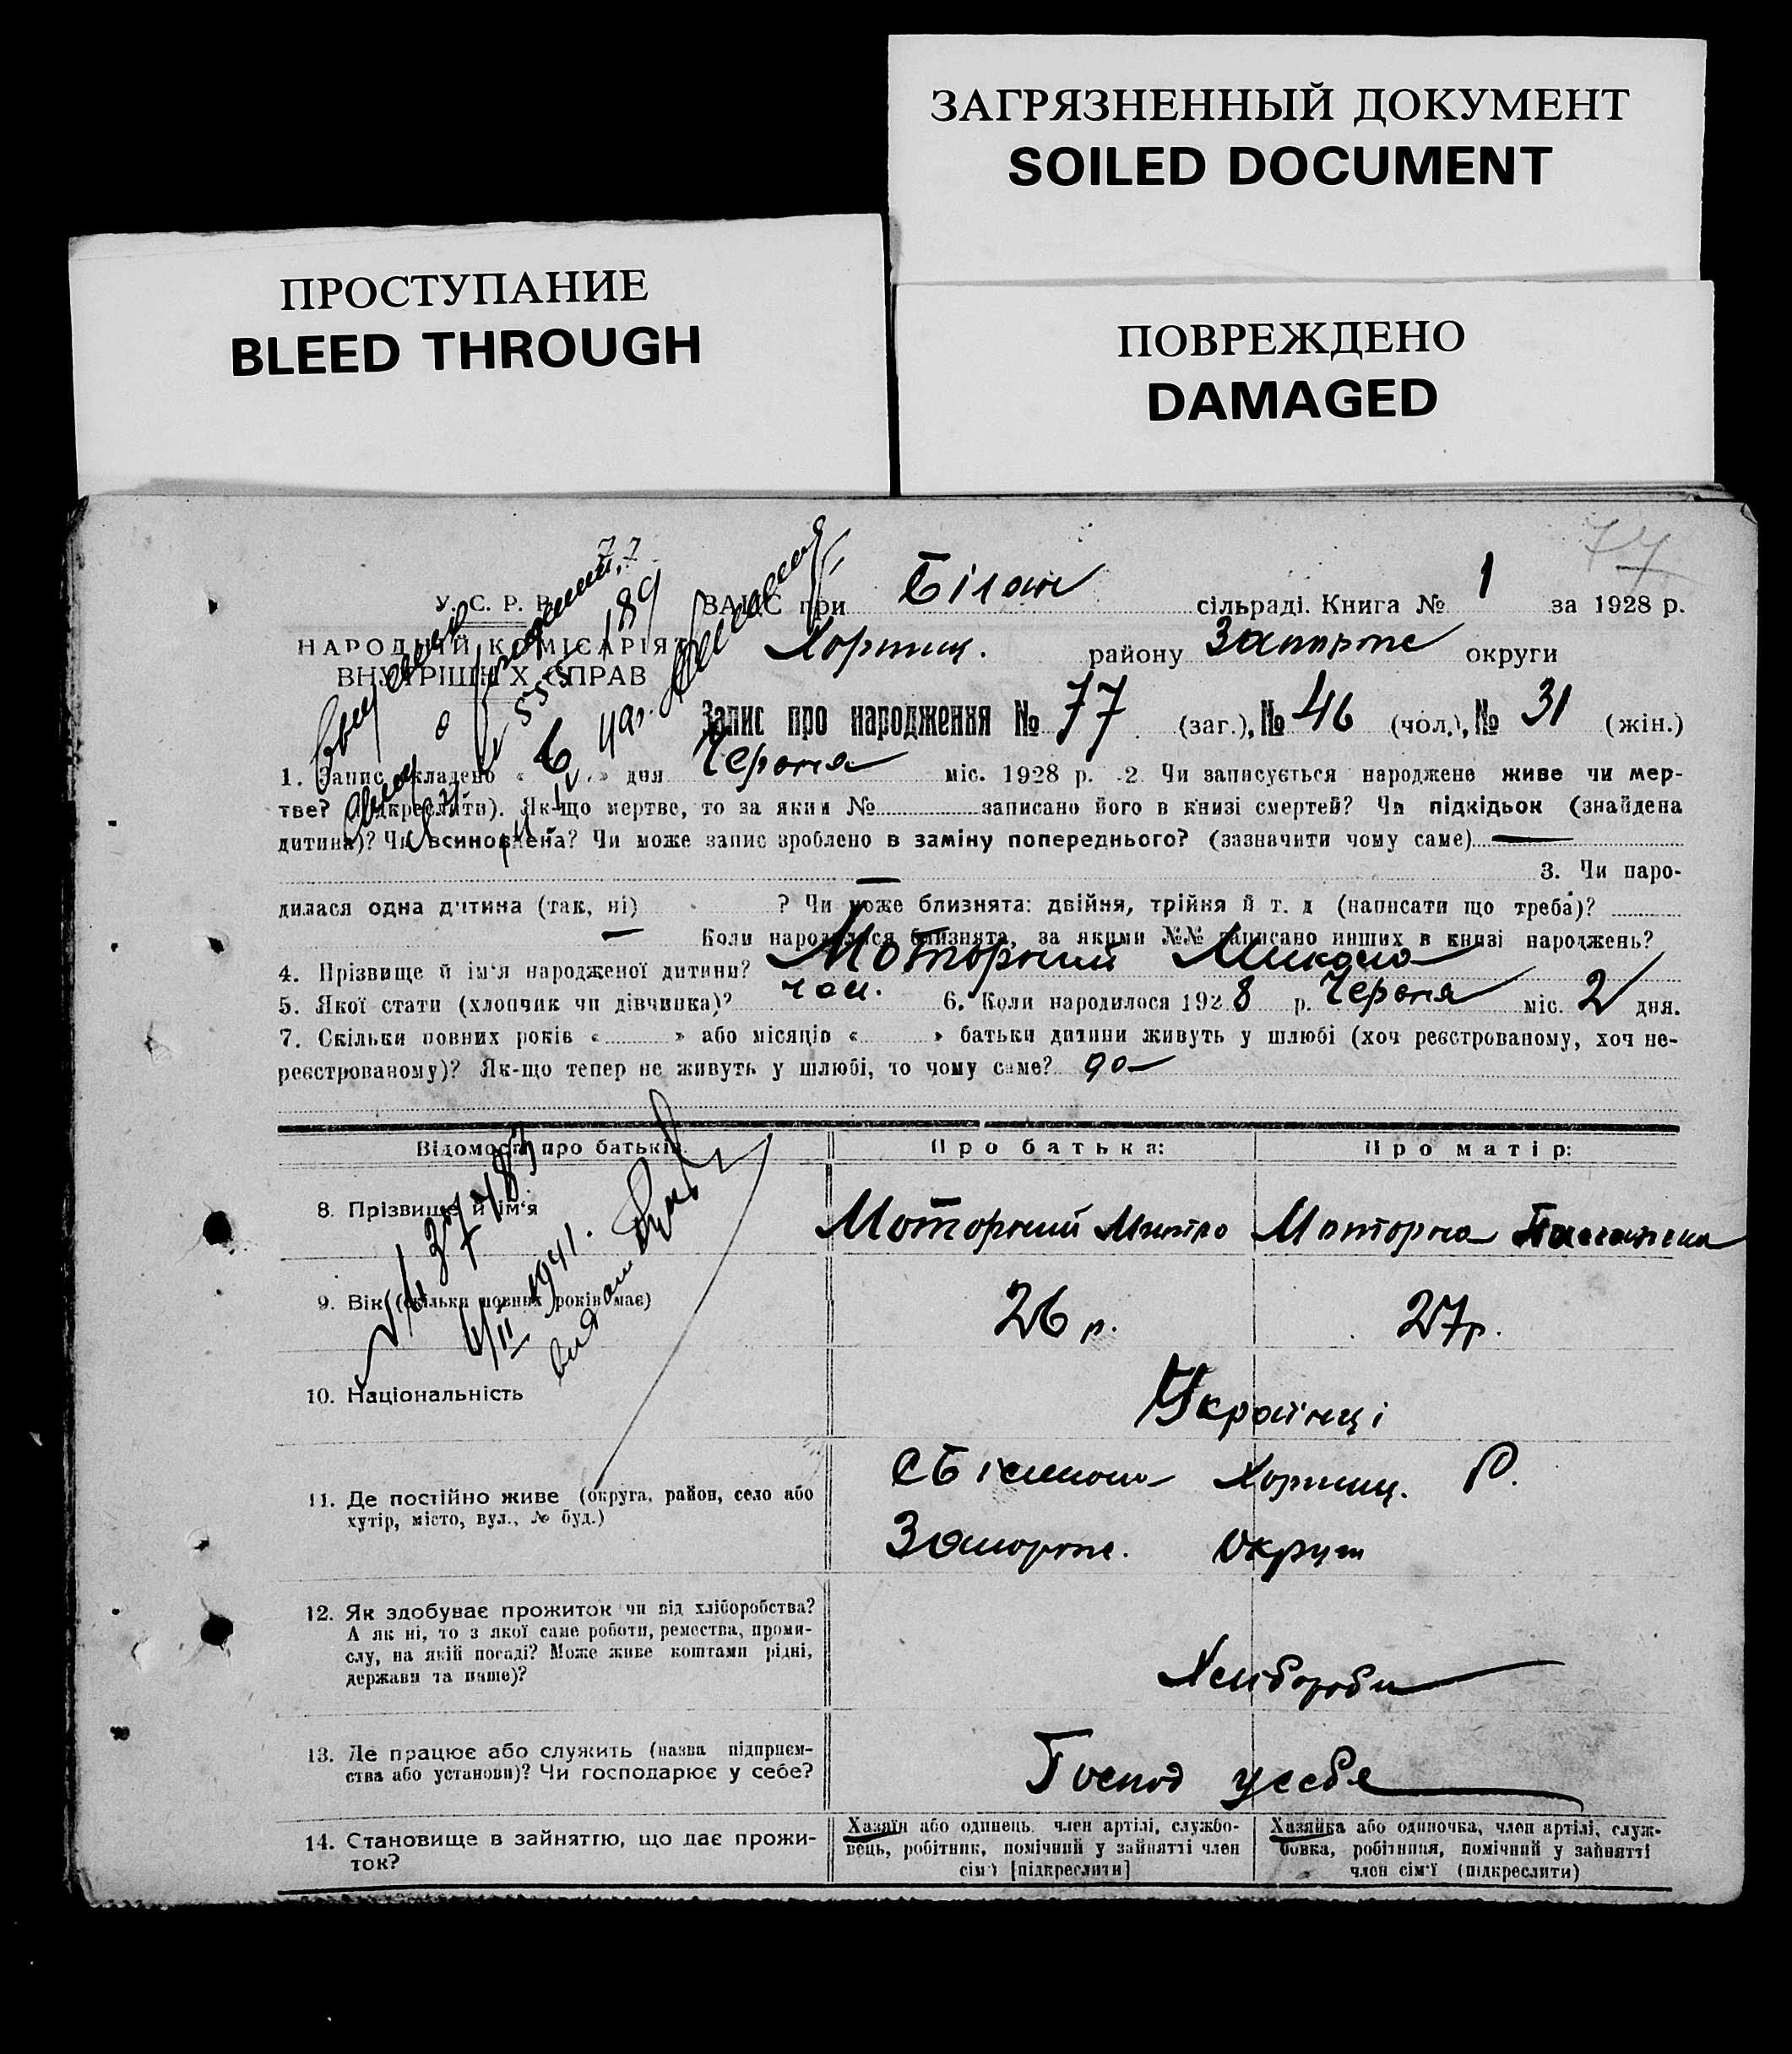 ЗАГРЯЗНЕННЫЙ ДОКУМЕНТ
SOILED DOCUMENT
ПРОСТУПАНИЕ
BLEED THROUGH
ПОВРЕЖДЕНО
DAMAGED
77
У. С. Р. Р.
НАРОДНІЙ КОМІСАРІЯТ
ВНУТРІШНІХ СПРАВ
ЗАГС при сільраді. Книга № 1 за 1928 р.
Хортиц. району Запоріж округи
Запис про народження № 77 (заг.), № 46 (чол.), № 31 (жін.)
1. Запис складено « 6 » дня Червня міс. 1928 р. 2. Чи записується народжене живе чи мер-
тве? (підкреслити). Як-що мертве, то за яким № записано його в книзі смертей? Чи підкідьок (знайдена
дитина)? Чи всиновлена? Чи може запис зроблено в заміну попереднього? (зазначити чому саме) —
3. Чи наро-
дилася одна дитина (так, ні) — ? Чи може близнята: двійня, трійня й т. д (написати що треба)?
— Коли народилися близнята, за якими №№ записано инших в книзі народжень?
4. Прізвище й ім'я народженої дитини? Моторний Микола
5. Якої стати (хлопчик чи дівчинка)? чол. 6. Коли народилося 1928 р. Червня міс. 2 дня.
7. Скільки повних років « » або місяців « » батьки дитини живуть у шлюбі (хоч реєстрованому, хоч не-
реєстрованому)? Як-що тепер не живуть у шлюбі, то чому саме?
Відомості про батьків. Про батька: Про матір:
8. Прізвище й ім'я Моторний Митро Моторна
9. Вік (скільки повних років має) 26 р. 27 р.
10. Національність Українці
11. Де постійно живе (округа, район, село або
хутір, місто, вул., № буд.) Хортиц. Р.
Запорож. округи
12. Як здобуває прожиток чи від хліборобства?
А як ні, то з якої саме роботи, ремества, проми-
слу, на якій посаді? Може живе коштами рідні,
держави та инше)? Хлібороби
13. Де працює або служить (назва підприєм-
ства або установи)? Чи господарює у себе? Господ усебе
14. Становище в зайняттю, що дає прожи-
ток?
Хазяїн або одинець, член артілі, службо-
вець, робітник, помічний у зайнятті член
сім'ї [підкреслити]
Хазяйка або одиночка, член артілі, служ-
бовка, робітниця, помічний у зайнятті
член сім'ї (підкреслити)
6/II 1941.